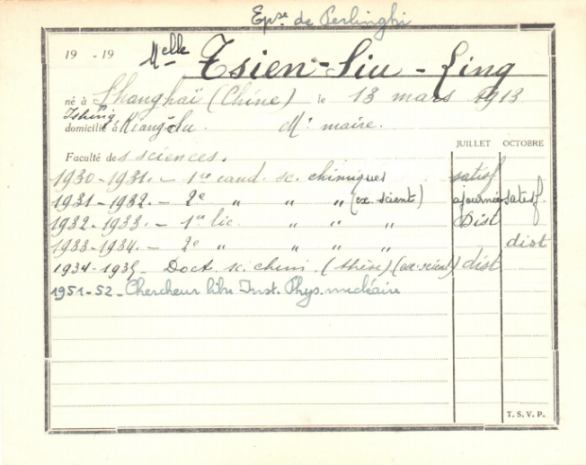 Epse de Perlinghi
19 -19 Melle Tsien-Siu-Ling
né à Shanghaï (Chine) le 13 mars 1913
Ishing
domicilié à Kiang-Su. Mr maire.
JUILLET OCTOBRE
Faculté des sciences.
1930-1931.- 1re cand. sc. chimiques satisf
1931-1932.- 2e " " " (ex. scient) ajournée satisf.
1932-1933.- 1re lic. " " " Dist
1933-1934.- 2e " " " " dist
1934-1935- Doct. sc. chim. (thèse) (ex. scient) dist
1951-52-Chercheur libre Inst. Phys. nucléaire
T. S. V. P.